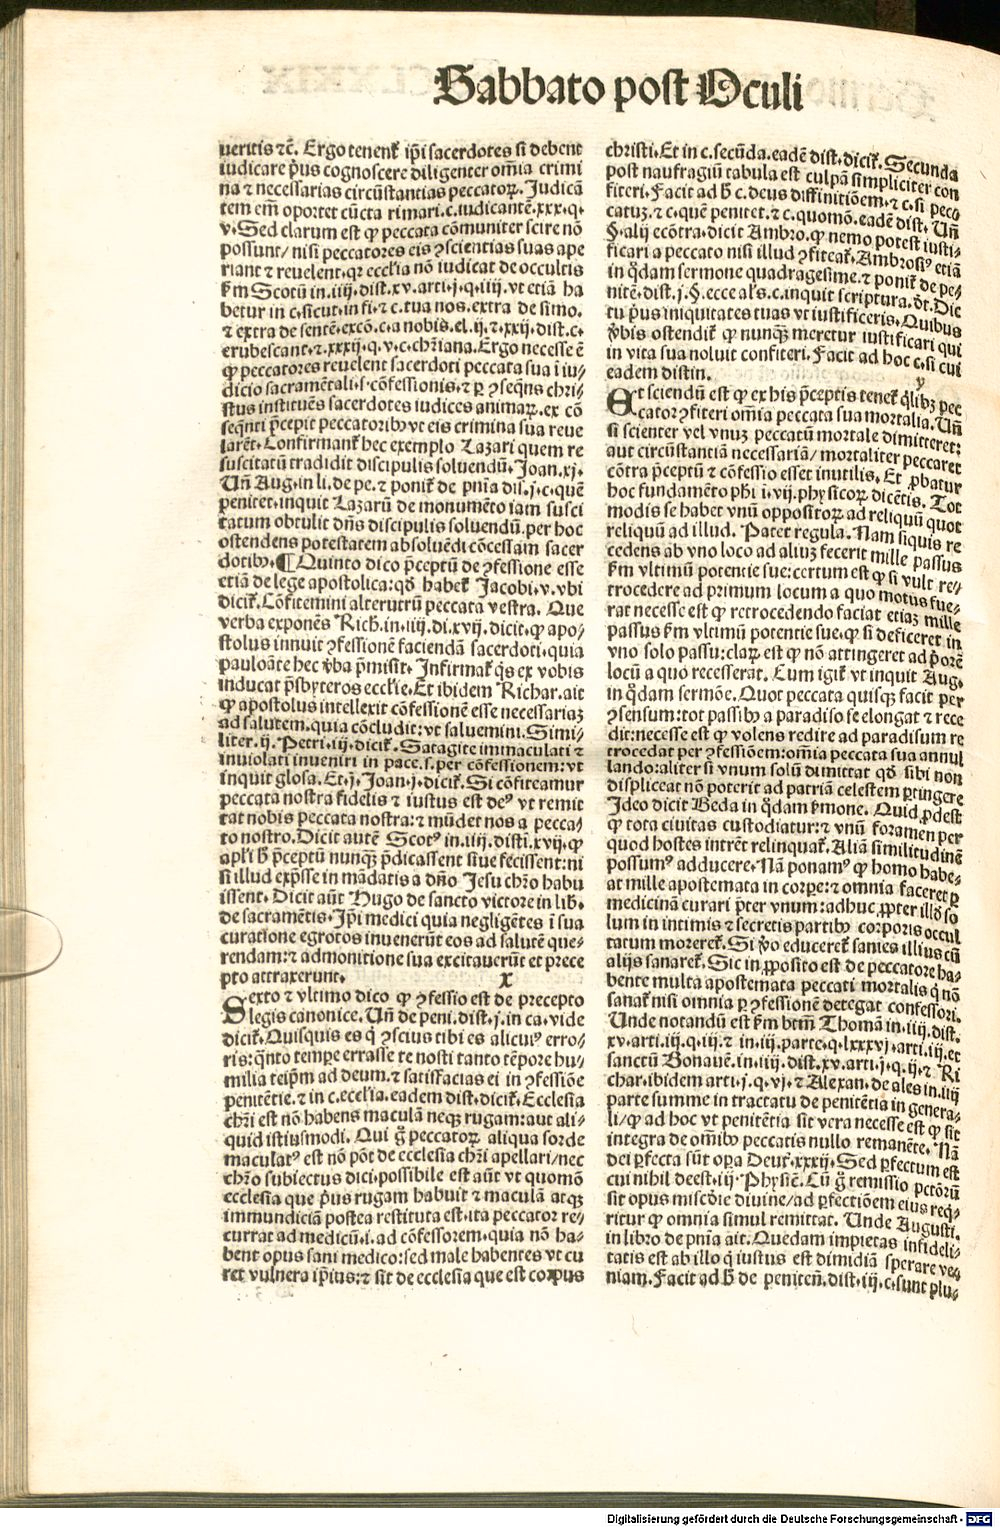 Sabbato post Oculi
ueritis ⁊c̄. Ergo tenent᷑ ip̄i sacerdotes si debent
iudicare p̄us cognoscere diligenter om̄ia crimi
na ⁊ necessarias circūstantias peccatoꝝ. Judicā
tem em̄ oportet cūcta rimari.c.iudicantē.xxx.q.
v. Sed clarum est ꝙ peccata cōmuniter scire nō
possunt/ nisi peccatores eis ꝯscientias suas ape
riant ⁊ reuelent.qꝛ eccl'ia nō iudicat de occultis
ẜm Scotū in.iiij.dist.xv.arti.j.q.iiij.vt etiā ha
betur in c.sicut.in fi.⁊ c.tua nos.extra de simo.
⁊ extra de sentē.excō.c.a nobis.el.ij.⁊.xxij.dist.c.
erubescant.⁊.xxxij.q.v.c.chr̄iana. Ergo necesse ē
ꝙ peccatores reuelent sacerdoti peccata sua ī iu/
dicio sacramētali.s.cōfessionis.⁊ ꝑ ꝯseq̄ns chri/
stus instituēs sacerdotes iudices animaꝝ.ex cō
seq̄nti p̄cepit peccatoribꝫ vt eis crimina sua reue
larēt. Confirmant᷑ hec exemplo Lazari quem re
suscitatū tradidit discipulis soluendū. Joan.xj.
Un̄ Aug.in li.de pe.⁊ ponit᷑ de pn̄ia dis.j.c.quē
penitet.inquit Lazarū de monumēto iam susci
tatum obtulit dn̄s discipulis soluendū.per hoc
ostendens potestatem absoluēdi cōcessam sacer
dotibꝫ. ¶ Quinto dico p̄ceptū de ꝯfessione esse
etiā de lege apostolica: qd̄ habet᷑ Jacobi.v.vbi
dicit᷑. Cōfitemini alterutrū peccata vestra. Que
verba exponēs Rich̄.in.iiij.di.xvij.dicit.ꝙ apo/
stolus innuit ꝯfessionē faciendā sacerdoti.quia
pauloāte hec v̄ba p̄misit. Infirmat᷑ q̄s ex vobis
inducat p̄sbyteros eccl'ie. Et ibidem Richar.ait
ꝙ apostolus intellexit cōfessionē esse necessariaꝫ
ad salutem.quia cōcludit: vt saluemini. Simi/
liter.ij. Petri.iij.dicit᷑. Satagite immaculati ⁊
inuiolati inueniri in pace.s.per cōfessionem: vt
inquit glosa. Et.j. Joan.j.dicit᷑. Si cōfiteamur
peccata nostra fidelis ⁊ iustus est deꝰ vt remit
tat nobis peccata nostra: ⁊ mūdet nos a pecca/
to nostro. Dicit autē Scotꝰ in.iiij.disti.xvij.ꝙ
apl'i h̄ p̄ceptū nunqꝫ p̄dicassent siue fecissent: ni
si illud exp̄sse in mādatis a dn̄o Jesu chr̄o habu
issent. Dicit aūt Hugo de sancto victore in lib.
de sacramētis. Ip̄i medici quia negligētes ī sua
curatione egrotos inuenerūt eos ad salutē que/
rendam: ⁊ admonitione sua excitauerūt et prece
pto attraxerunt. x
Sexto ⁊ vltimo dico ꝙ ꝯfessio est de precepto
legis canonice. Un̄ de peni.dist.j.in ca.vide
dicit᷑. Quisquis es q̄ ꝯscius tibi es alicuiꝰ erro/
ris: q̄nto tempe errasse te nosti tanto tēpore hu/
milia teip̄m ad deum.⁊ satisfacias ei in ꝯfessiōe
penitētie.⁊ in c.eccl'ia.eadem dist.dicit᷑. Ecclesia
chr̄i est nō habens maculā neqꝫ rugam: aut ali/
quid istiusmodi. Qui g̊ peccatoꝝ aliqua sorde
maculatꝰ est nō pōt de ecclesia chr̄i apellari/ nec
chr̄o subiectus dici.possibile est aūt vt quomō
ecclesia que p̄us rugam habuit ⁊ maculā atqꝫ
immundiciā postea restituta est.ita peccator re/
currat ad medicū.i.ad cōfessorem.quia nō ha/
bent opus sani medico: sed male habentes vt cu
ret vulnera ip̄ius: ⁊ sit de ecclesia que est corpus
christi. Et in c.secūda.eadē dist.dicit᷑. Secunda
post naufragiū tabula est culpā simpliciter con
fiteri. Facit ad h̄ c.deus diffinitiōem.⁊ c.si pecc
catuꝫ.⁊ c.quē penitet.⁊ c.quomō.eadē dist. Un̄
§.alij ecōtra.dicit Ambro.ꝙ nemo potest iusti/
ficari a peccato nisi illud ꝯfiteat᷑. Ambrosiꝰ etiā
in q̄dam sermone quadragesime.⁊ ponit᷑ de pe/
nitē.dist.j.§.ecce al's.c.inquit scriptura.d̄t. Dic
tu p̄us iniquitates tuas vt iustificeris. Quibus
v̄bis ostendit᷑ ꝙ nunqꝫ meretur iustificari qui
in vita sua noluit confiteri. Facit ad hoc c.si cui
eadem distin. y
Et sciendū est ꝙ ex his p̄ceptis tenet᷑ q̄libꝫ pec
cator ꝯfiteri om̄ia peccata sua mortalia. Un̄
si scienter vel vnuꝫ peccatū mortale dimitteret:
aut circūstantiā necessariā/ mortaliter peccaret
cōtra p̄ceptū ⁊ cōfessio esset inutilis. Et ꝓbatur
hoc fundamēto ph̄i i.vij.physicoꝝ dicētis. Tot
modis se habet vnū oppositoꝝ ad reliquū quot
reliquū ad illud. Patet regula. Nam siquis re
cedens ab vno loco ad aliuꝫ fecerit mille passus
ẜm vltimū potentie sue: certum est ꝙ si vult re/
trocedere ad primum locum a quo motus fue/
rat necesse est ꝙ retrocedendo faciat etiaꝫ mille
passus ẜm vltimū potentie sue.ꝙ si deficeret in
vno solo passu: claꝝ est ꝙ nō attingeret ad p̄orē
locū a quo recesserat. Cum igit᷑ vt inquit Aug.
in q̄dam sermōe. Quot peccata quisqꝫ facit per
ꝯsensum: tot passibꝫ a paradiso se elongat ⁊ rece
dit: necesse est ꝙ volens redire ad paradisum re
trocedat per ꝯfessiōem: om̄ia peccata sua annul
lando: aliter si vnum solū dimittat qd̄ sibi non
displiceat nō poterit ad patriā celestem ꝑtingere
Ideo dicit Beda in q̄dam ẜmone. Quid ꝓdest
ꝙ tota ciuitas custodiatur: ⁊ vnū foramen per
quod hostes intrēt relinquat᷑. Aliā similitudinē
possumꝰ adducere. Nā ponamꝰ ꝙ homo habe/
at mille apostemata in corpe: ⁊ omnia faceret ꝑ
medicinā curari p̄ter vnum: adhuc ꝓpter illō so
lum in intimis ⁊ secretis partibꝫ corporis occul
tatum moreret᷑. Si v̄o educeret᷑ sanies illius cū
alijs sanaret᷑. Sic in ꝓposito est de peccatore ha/
bente multa apostemata peccati mortalis q̄ nō
sanat᷑ nisi omnia ꝑ ꝯfessionē detegat confessori.
Unde notandū est ẜm btm̄ Thomā in.iiij.dist.
xv.arti.iij.q.iij.⁊ in.iij.parte.q.lxxxvj.arti.iij.et
sanctū Bonauē.in.iiij.dist.xv.arti.j.q.ij.⁊ Ri
char.ibidem arti.j.q.vj.⁊ Alexan.de ales in.iiij
parte summe in tractatu de penitētia in genera/
li/ꝙ ad hoc vt penitētia sit vera necesse est ꝙ sit
integra de om̄ibꝫ peccatis nullo remanēte. Nā
dei ꝑfecta sūt oꝑa Deut᷑.xxxij. Sed ꝑfectum est
cui nihil deest.iij. Physiē. Cū g̊ remissio pctōrū
sit opus miscdīe diuine/ ad ꝑfectiōem eius req̄/
ritur ꝙ omnia simul remittat. Unde Augusti.
in libro de pn̄ia ait. Quedam impietas infideli/
tatis est ab illo q̄ iustus est dimidiā sperare ve/
niam. Facit ad h̄ de peniten̄.dist.iij.c.sunt plu/
Digitalisierung gefördert durch die Deutsche Forschungsgemeinschaft - DFG